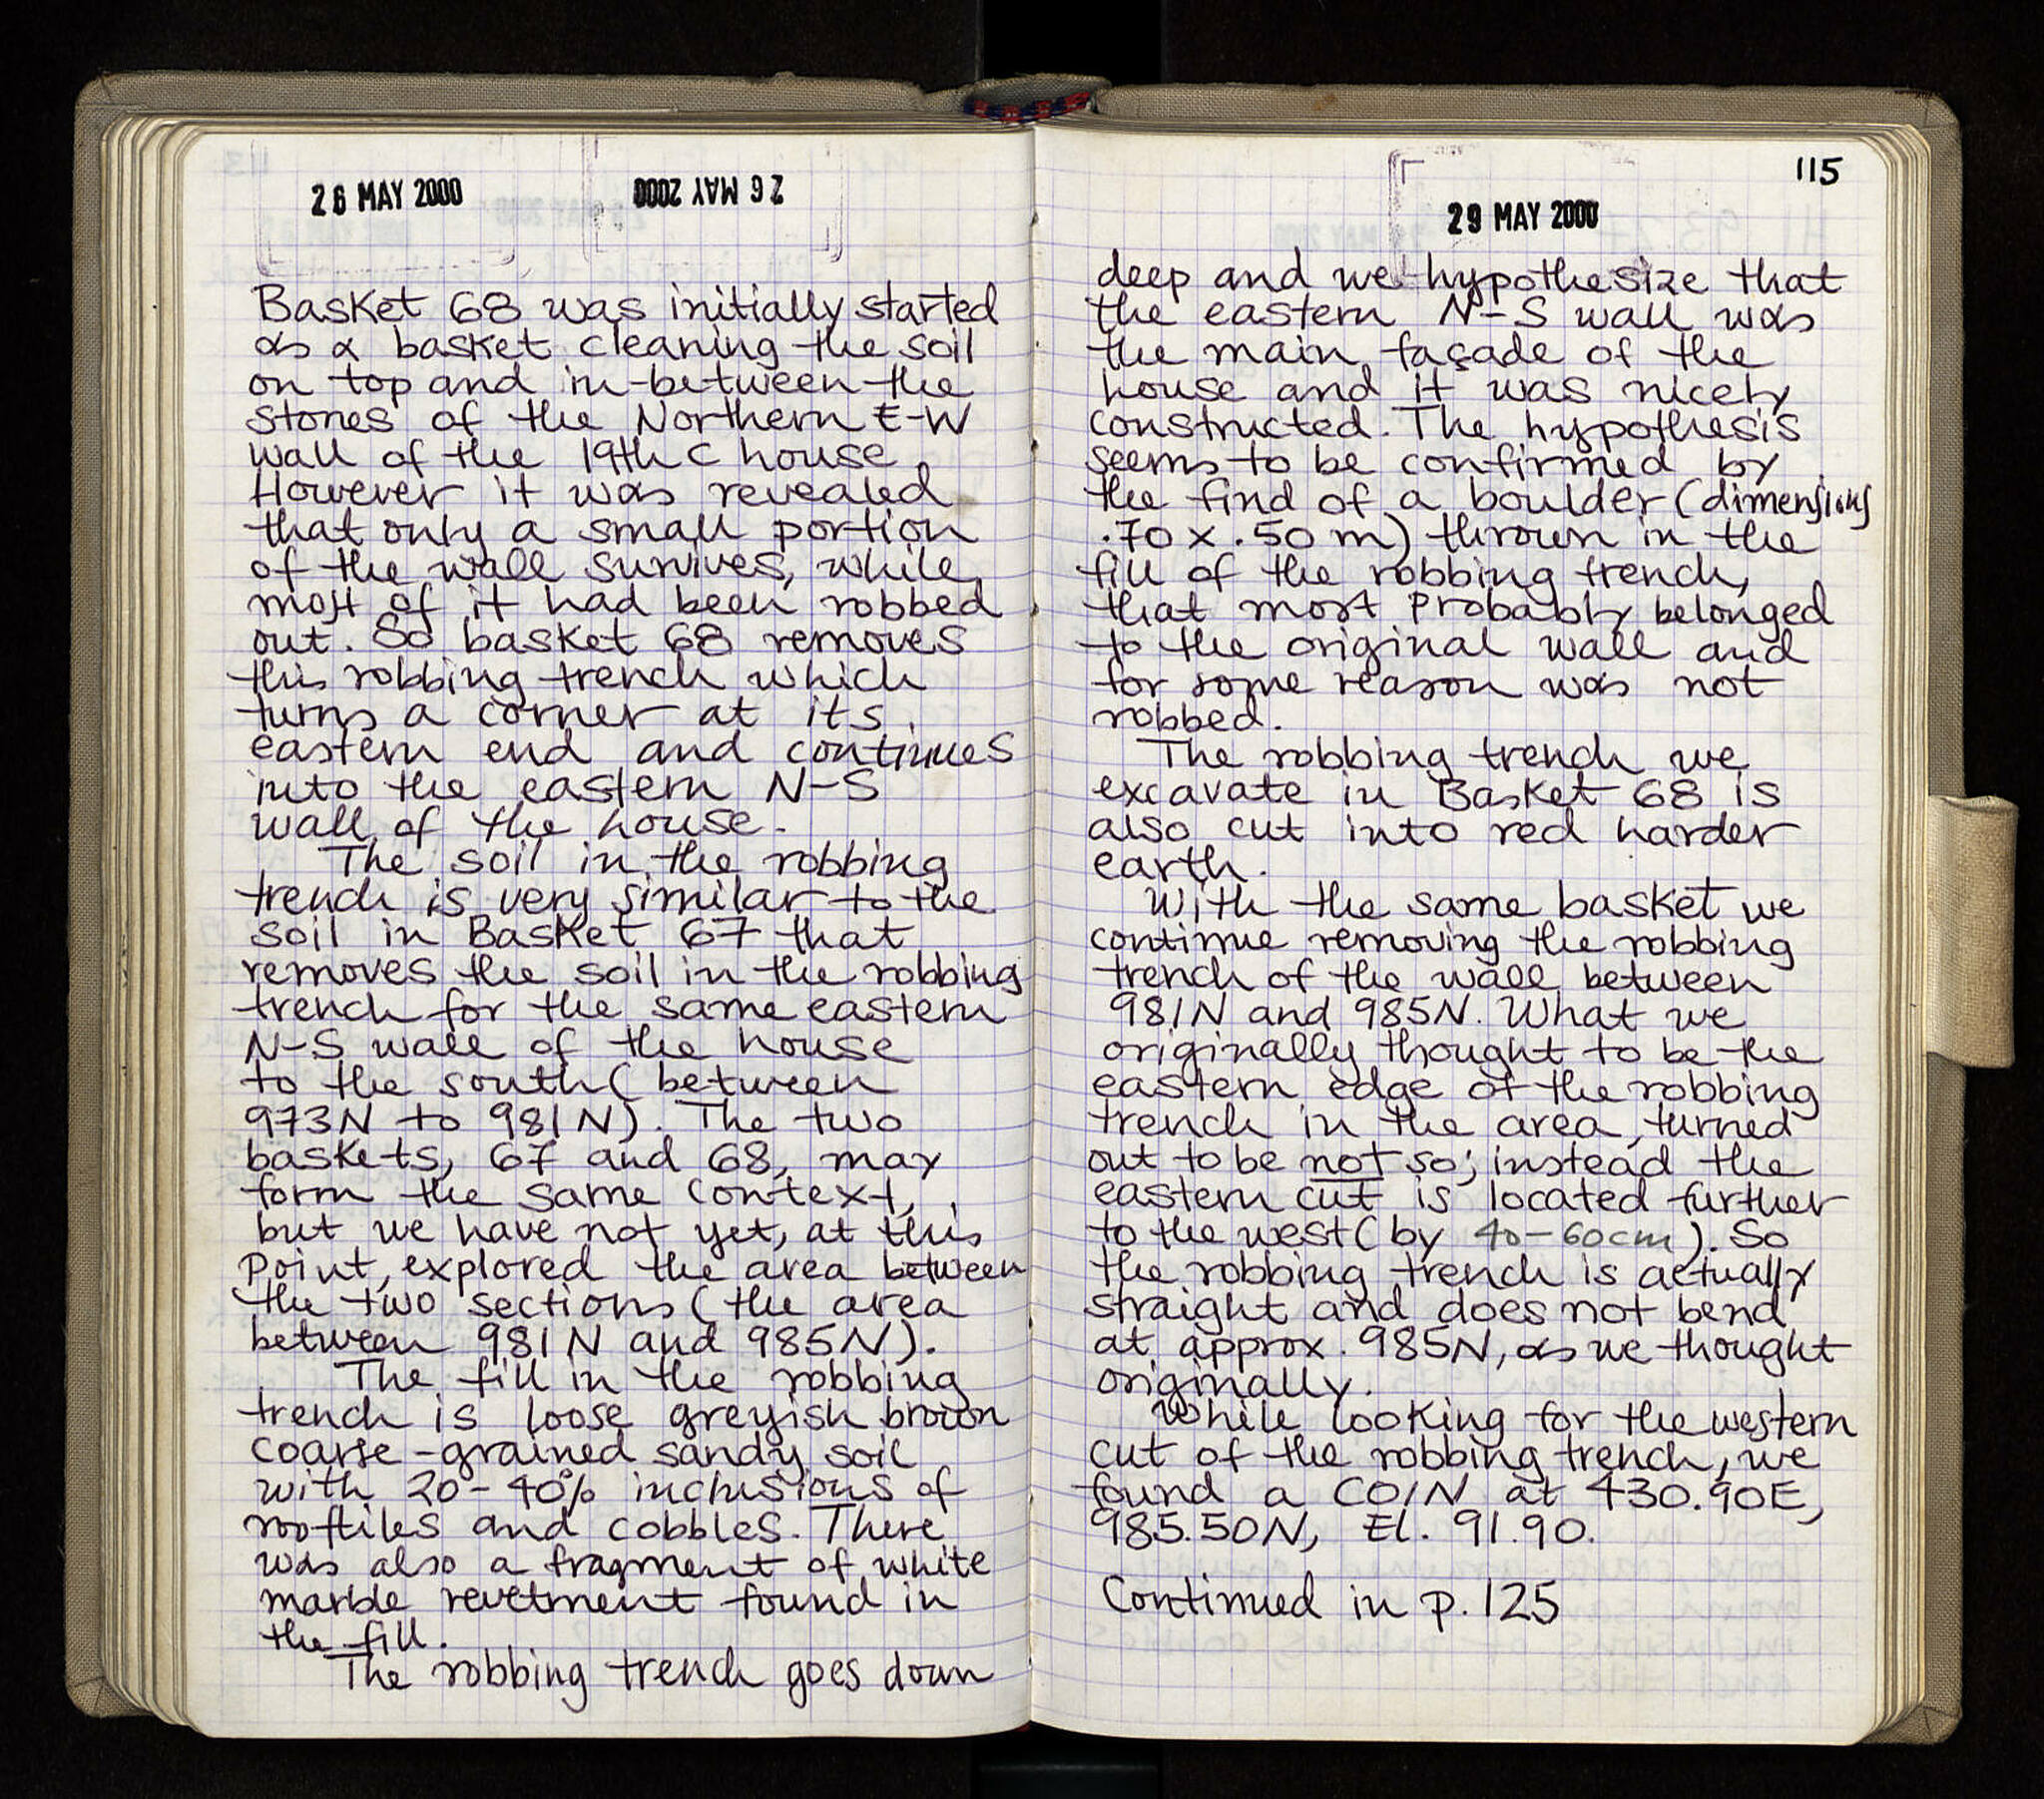 26 MAY 2000
26 MAY 2000
Basket 68 was initially started
as a basket cleaning the soil
on top and in-between the
stones of the Northern E-W
wall of the 19th c house.
However it was revealed
that only a small portion
of the wall survives, while
most of it had been robbed
out. So basket 68 removes
this robbing trench which
turns a corner at its
eastern end and continues
into the eastern N-S
wall of the house.
The soil in the robbing
trench is very similar to the
soil in Basket 67 that
removes the soil in the robbing
trench for the same eastern
N-S wall of the house
to the south (between
973N to 981N). The two
baskets, 67 and 68, may
form the same context,
but we have not yet, at this
point, explored the area between
the two sections (the area
between 981N and 985N).
The fill in the robbing
trench is loose greyish brown
coarse-grained sandy soil
with 20-40% inclusions of
rooftiles and cobbles. There
was also a fragment of white
marble revetment found in
the fill.
The robbing trench goes down
115
29 MAY 2000
deep and we hypothesize that
the eastern N-S wall was
the main façade of the
house and it was nicely
constructed. The hypothesis
seems to be confirmed by
the find of a boulder (dimensions
.70 x .50 m) thrown in the
fill of the robbing trench,
that most probably belonged
to the original wall and
for some reason was not
robbed.
The robbing trench we
excavate in Basket 68 is
also cut into red harder
earth.
With the same basket we
continue removing the robbing
trench of the wall between
981N and 985N. What we
originally thought to be the
eastern edge of the robbing
trench in the area, turned
out to be not so; instead the
eastern cut is located further
to the west (by 40-60cm). So
the robbing trench is actually
straight and does not bend
at approx. 985N, as we thought
originally.
While looking for the western
cut of the robbing trench, we
found a COIN at 430.90E,
985.50N, El. 91.90.
Continued in p. 125